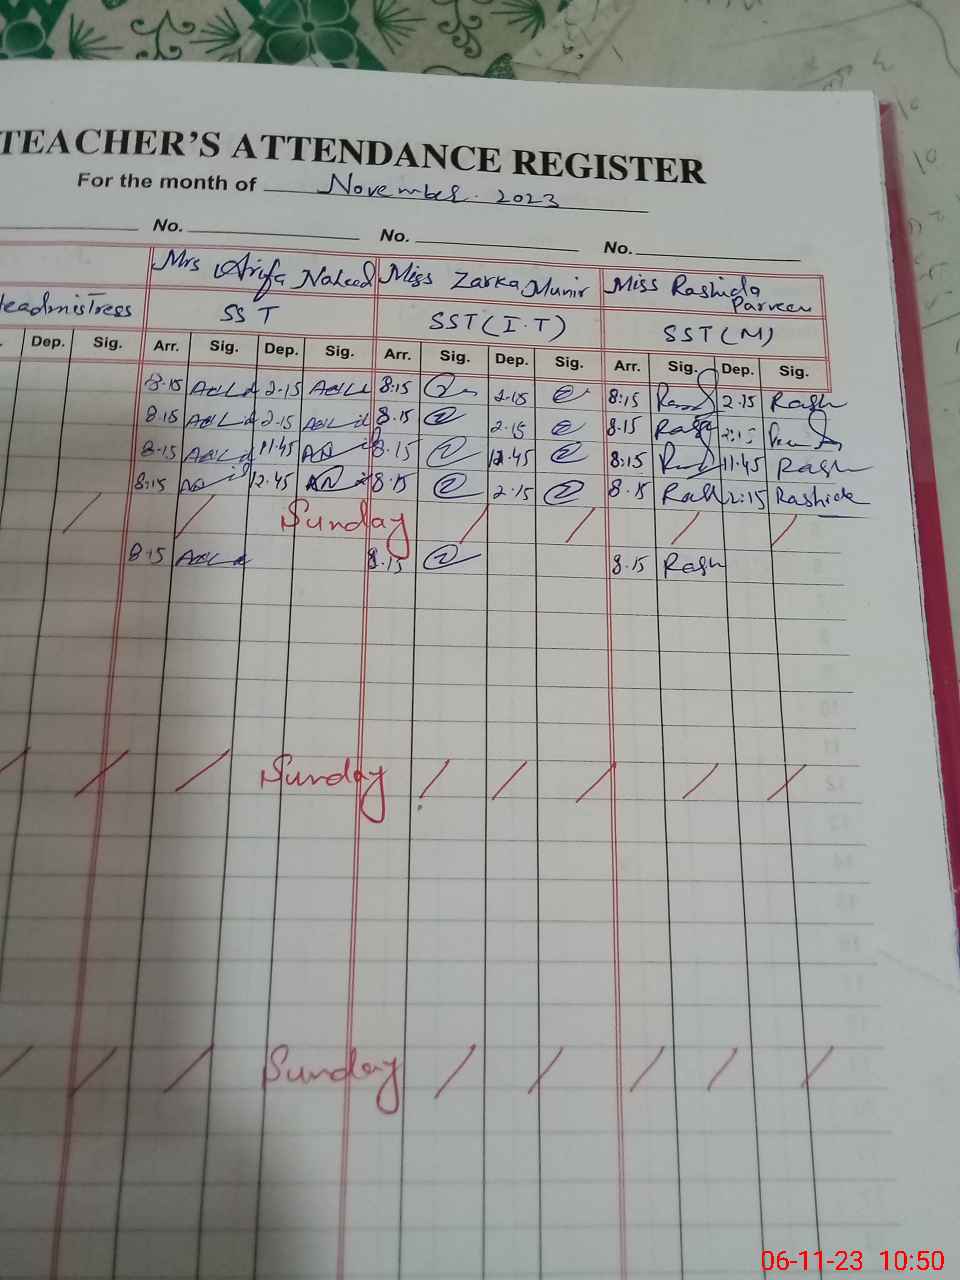 TEACHER'S ATTENDANCE REGISTER
For the month of November. 2023
No. No. No.
Mrs Arifa Naheed Miss Zarka Munir Miss Rashida Parveen
Headmistress SST SST (I.T) SST (M)
Dep. Sig. Arr. Sig. Dep. Sig. Arr. Sig. Dep. Sig. Arr. Sig. Dep. Sig.
8.15 2.15 8:15 2.15 8:15 2.15 Rash
8.15 2.15 8.15 2.15 8.15 2:15
8.15 11.45 8.15 11.45 8:15 11.45 Rash
8:15 12.45 8.15 2.15 8.15 2:15 Rashida
Sunday
8.15 8.15 8.15 Rash
Sunday
Sunday
06-11-23 10:50